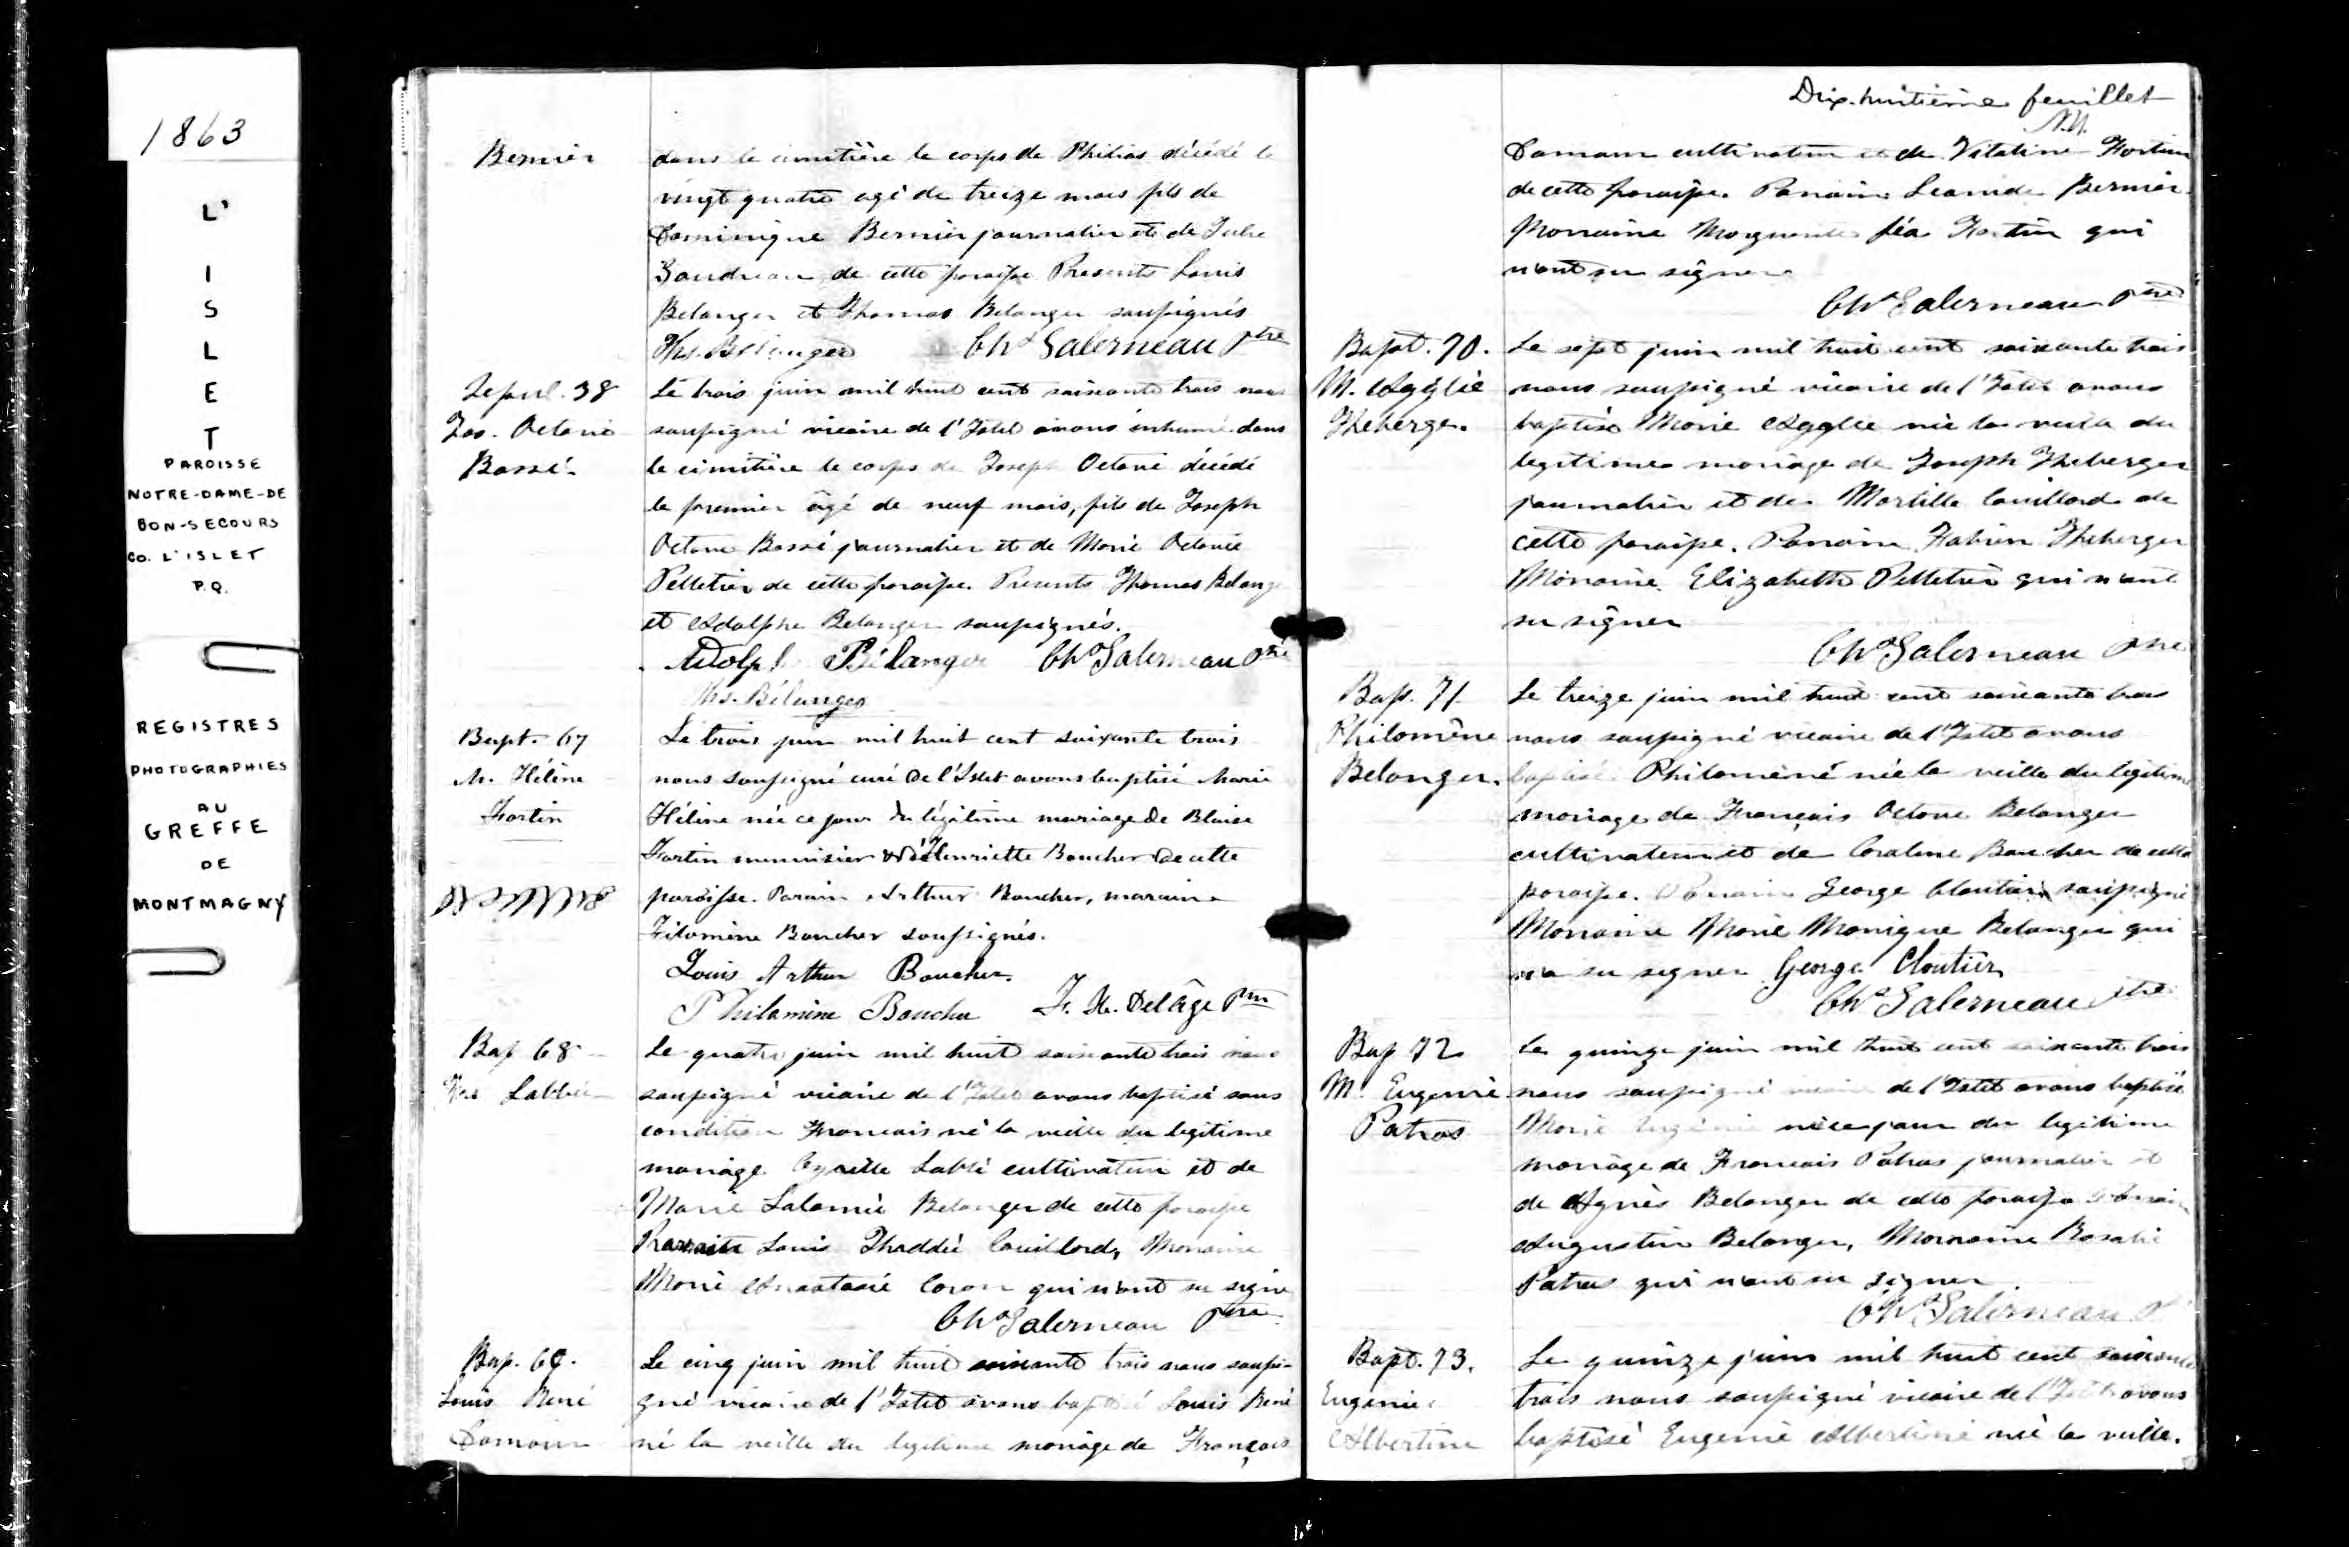 1863
L'
I
S
L
E
T
PAROISSE
NOTRE-DAME-DE
BON-SECOURS
CO. L'ISLET
P.Q.
REGISTRES
PHOTOGRAPHIES
AU
GREFFE
DE
MONTMAGNY
Bernier
dans le cimetière le corps de Philias décédé le
vingt quatre agé de treize mois fils de
Dominique Bernier journalier et de Julie
Gaudreau de cette paroisse Presents Louis
Belanger et Thomas Belanger soussignés
Ths. Bélanger Chs Galerneau Ptre
Sepul. 38
Jos. Octave
Bossé
Le trois juin mil huit cent soixante trois nous
soussigné vicaire de l'Islet avons inhumé dans
le cimitière le corps de Joseph Octave décédé
le premier âgé de neuf mois, fils de Joseph
Octave Bossé journalier et de Marie Octavie
Pelletier de cette paroisse. Presents Thomas Belanger
et Adolphe Belanger soussignés.
Adolphe Bélanger Chs Galerneau Ptre
Ths. Bélanger
Bapt. 67
M. Hélène
Fortin
Le trois juin mil huit cent soixante trois
nous soussigné curé de l'Islet avons baptisé Marie
Hélène née ce jour du légitime mariage de Blaise
Fortin menuisier & d'Henriette Boucher de cette
paroisse. Parain Arthur Boucher, maraine
Filomène Boucher soussignés.
Louis Arthur Boucher.
Philomène Boucher F. X. Delâge Ptre
Bap 68
Labbé
Le quatre juin mil huit soixante trois nous
soussigné vicaire de l'Islet avons baptisé sous
condition Francais né la veille du legitime
mariage Cyrille Labbé cultivateur et de
Marie Salomé Belanger de cette paroisse
Louis Thaddée Couillard, Maraine
Marie Anastasie Caron qui n'ont su signer
Chs Galerneau Ptre
Bap. 69.
Louis René
Damour
Le cinq juin mil huit soixante trois nous soussi-
gné vicaire de l'Islet avons baptisé Louis René
né la veille du legitime mariage de François
Dix-huitième feuillet
Damour cultivateur et de Vitaline Fortin
de cette paroisse. Parain Bernier
Maraine Marguerite Fortin qui
n'ont su signer
Chs Galerneau Ptre
Bapt. 70.
M. Agglée
Theberge.
Le sept juin mil huit cent soixante trois
nous soussigné vicaire de l'Islet avons
baptisé Marie Agglée née la veille du
legitime mariage de Joseph Theberge
journalier et de Martille Couillard de
cette paroisse. Parain Fabien Theberge
Maraine Elizabeth Pelletier qui n'ont
su signer
Chs Galerneau Ptre
Bap. 71
Philomène
Belanger.
Le treize juin mil huit cent soixante trois
nous soussigné vicaire de l'Islet avons
baptisé Philomène née la veille du legitime
mariage de François Octave Belanger
cultivateur et de Caroline Boucher de cette
paroisse. Parain George Cloutier soussigné
Maraine Marie Monique Belanger qui
n'a su signer George Cloutier
Chs Galerneau Ptre
Bap 72
M. Eugenie
Patras
Le quinze juin mil huit cent soixante trois
nous soussigné vicaire de l'Islet avons baptisé
Marie Eugénie née ce jour du legitime
mariage de Francais Patras journalier et
de Agnès Belanger de cette paroisse Parain
Augustin Belanger, Maraine Rosalie
Patras qui n'ont su signer.
Chs Galerneau P
Bapt. 73.
Eugenie
Albertine
Le quinze juin mil huit cent soixante
trois nous soussigné vicaire de l'Islet avons
baptisé Eugenie Albertine née la veille.